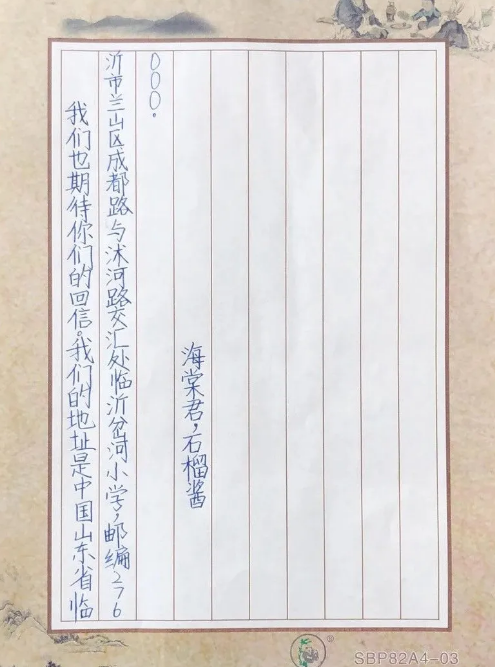 我们也期待你们的回信。我们的地址是中国山东省临
沂市兰山区成都路与沭河路交汇处临沂岔河小学，邮编276
000。
海棠君，石榴酱
SBP82A4-03